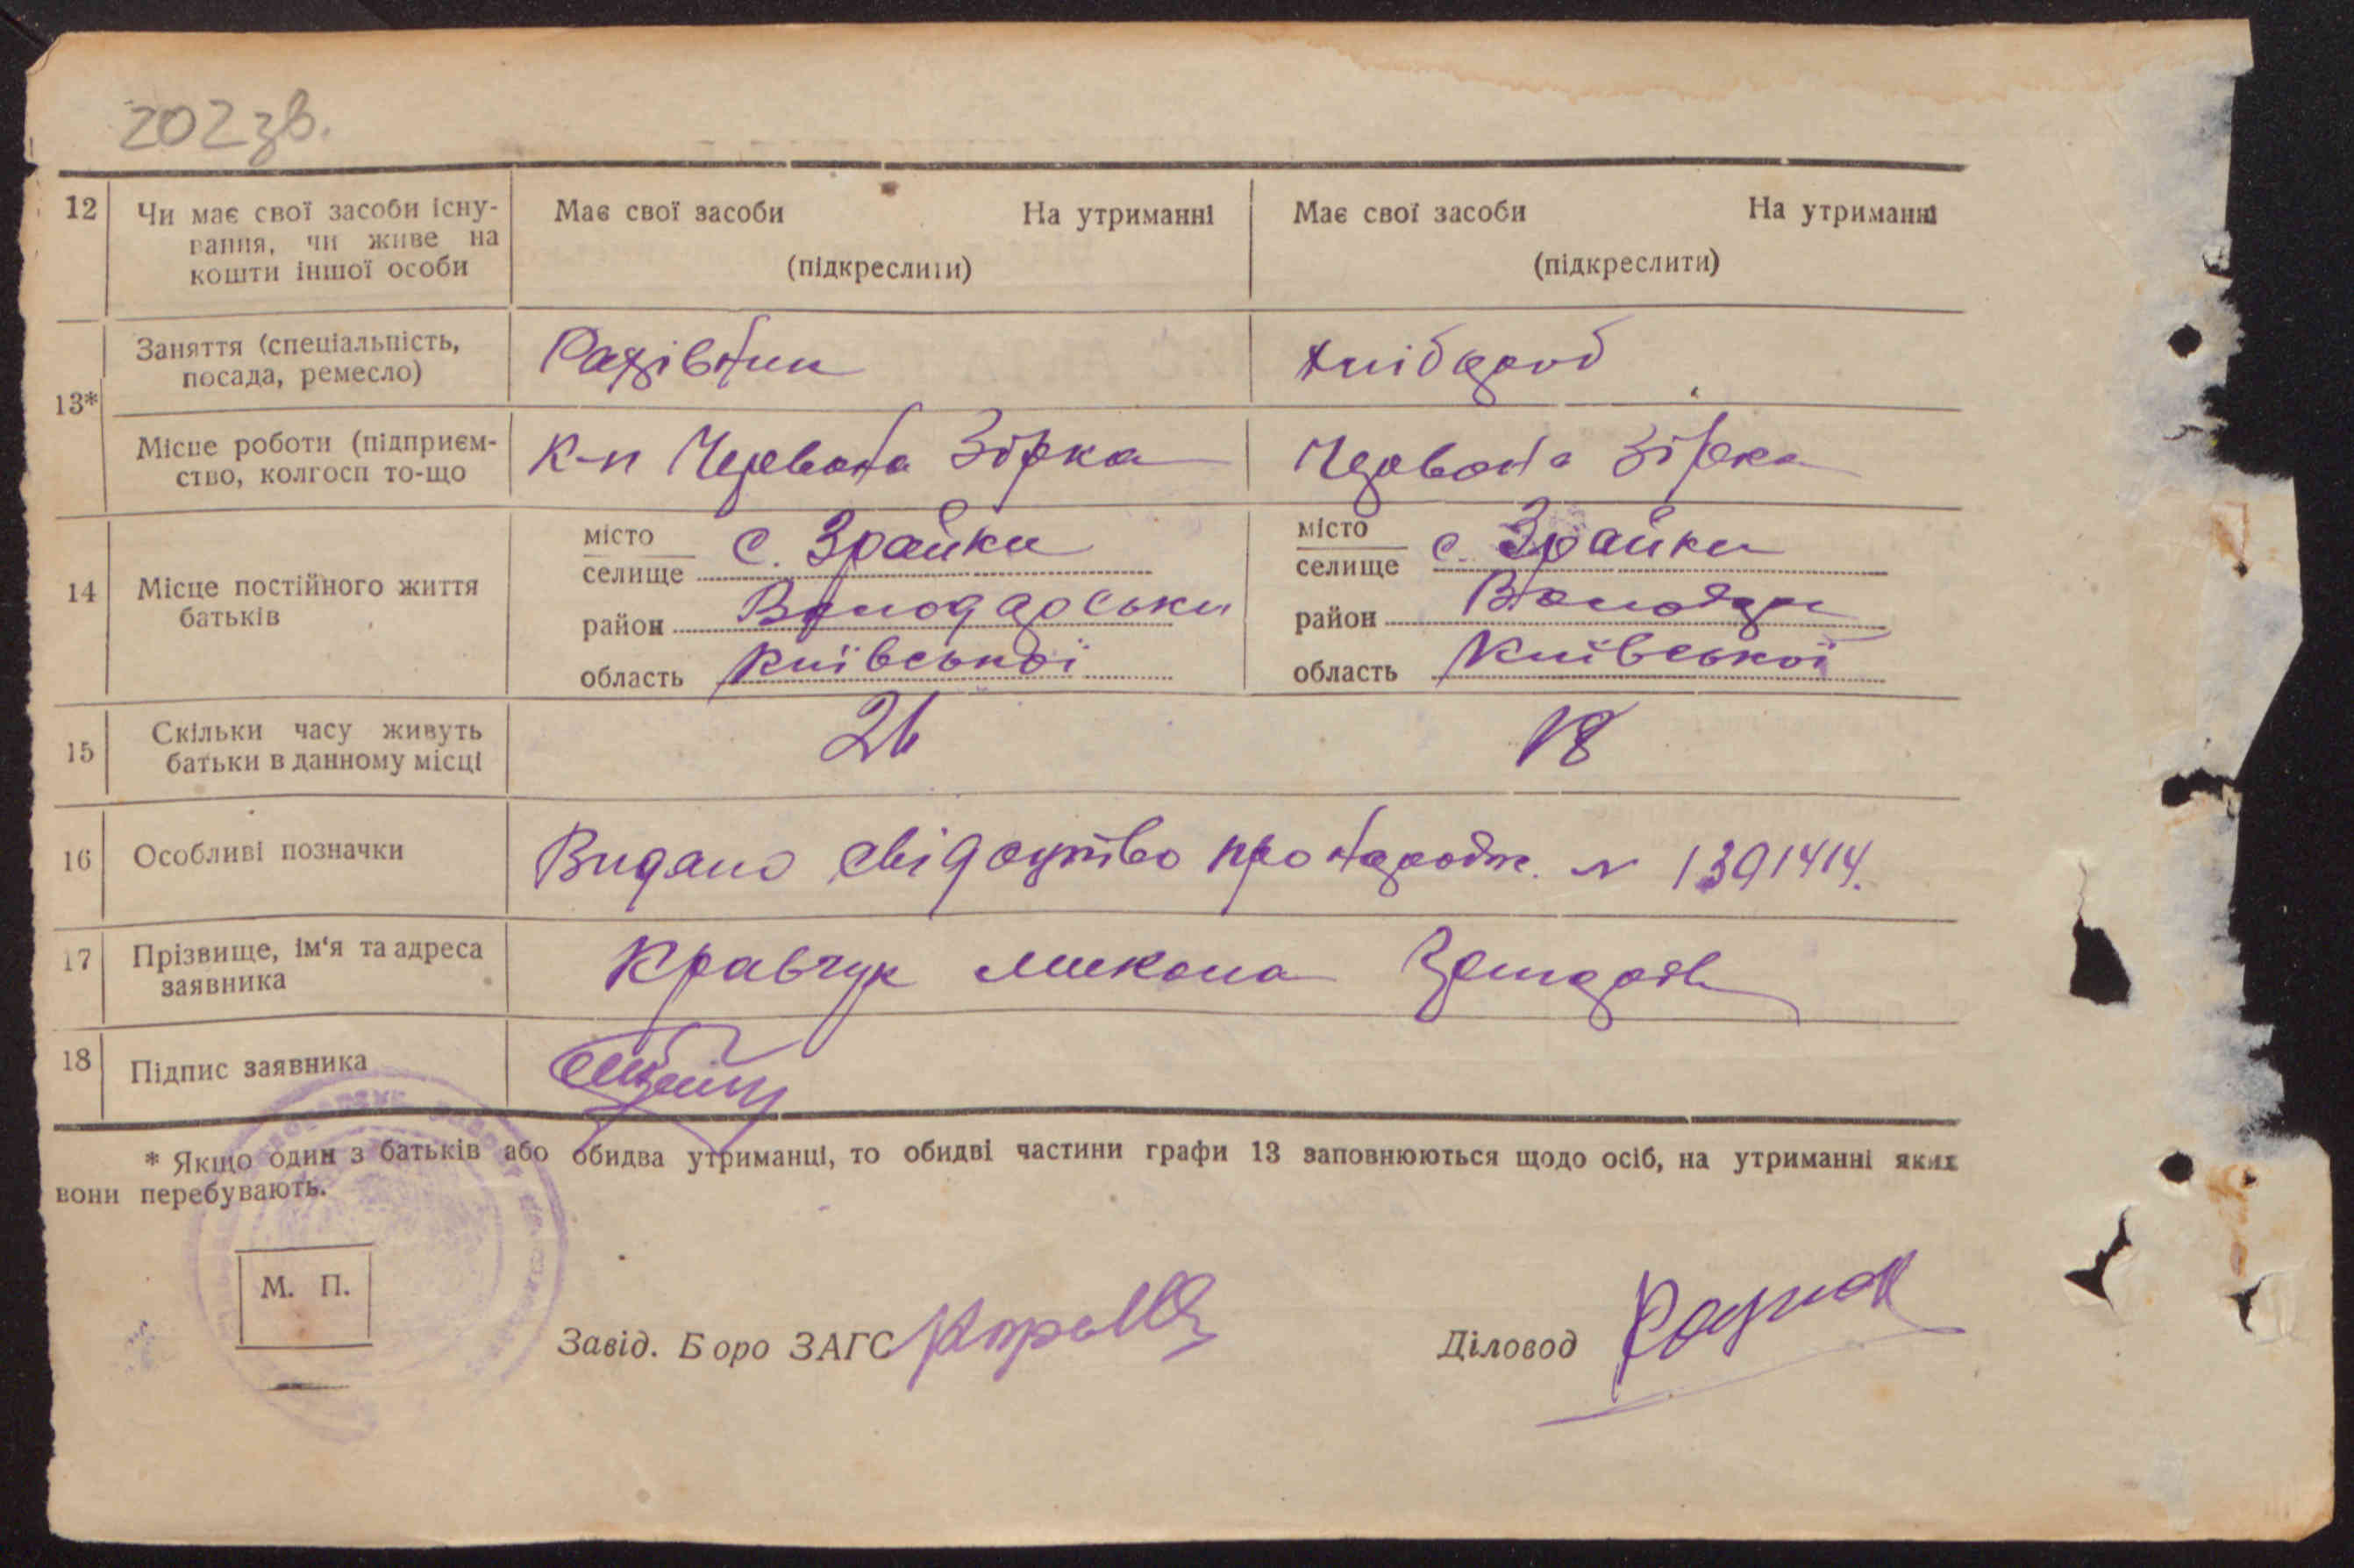 202зв.
12 Чи має свої засоби існу-
вання, чи живе на
кошти іншої особи
Має свої засоби На утриманні
(підкреслити)
Має свої засоби На утриманні
(підкреслити)
13*
Заняття (спеціальність,
посада, ремесло)
Хлібороб
Місце роботи (підприєм-
ство, колгосп то-що
К-п Червона Зірка
Червона Зірка
14 Місце постійного життя
батьків
місто
селище с. Зрайки
район Володарськи
область Київської
місто
селище с. Зрайки
район Володар
область Київської
15 Скільки часу живуть
батьки в данному місці
26
18
16 Особливі позначки
Видано свідоцтво про народж. № 1391414.
17 Прізвище, ім'я та адреса
заявника
Кравчук Микола
18 Підпис заявника
* Якщо один з батьків або обидва утриманці, то обидві частини графи 13 заповнюються щодо осіб, на утриманні яких
вони перебувають.
М. П.
Завід. Бюро ЗАГС
Діловод